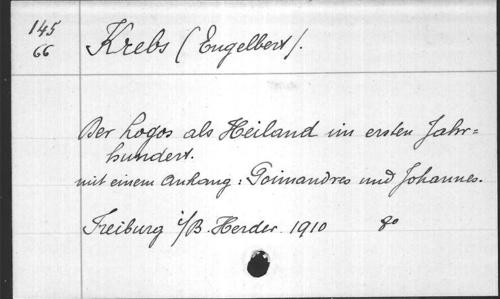 145
66
Krebs (Engelbert).
Der Logos als Heiland im ersten Jahr=
hundert.
mit einem Anhang: Poimandres und Johannes.
Freiburg i/B. Herder. 1910 8o